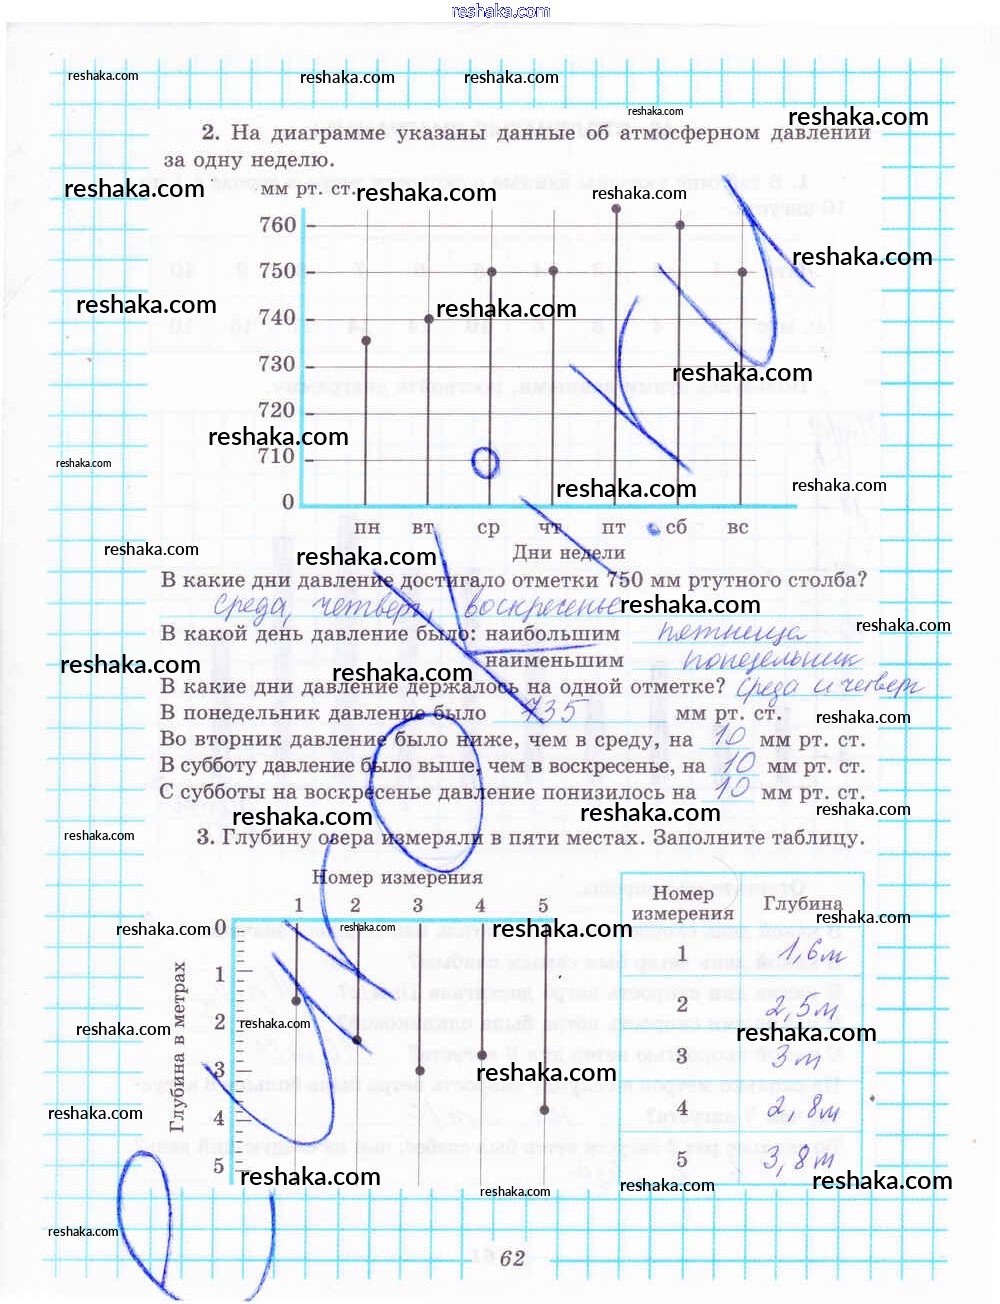 reshaka.com
reshaka.com reshaka.com reshaka.com
reshaka.com reshaka.com
2. На диаграмме указаны данные об атмосферном давлении
reshaka.com
за одну неделю.
reshaka.com мм рт. ст. reshaka.com reshaka.com
760
reshaka.com
750
reshaka.com reshaka.com
740
730
reshaka.com
720
reshaka.com
710
reshaka.com
reshaka.com reshaka.com
0
пн вт ср чт пт сб вс
reshaka.com reshaka.com Дни недели
В какие дни давление достигало отметки 750 мм ртутного столба?
среда, четверг, воскресенье reshaka.com
В какой день давление было: наибольшим пятница
reshaka.com
reshaka.com reshaka.com наименьшим понедельник
В какие дни давление держалось на одной отметке? среда и четверг
В понедельник давление было 735 мм рт. ст.
reshaka.com
Во вторник давление было ниже, чем в среду, на 10 мм рт. ст.
В субботу давление было выше, чем в воскресенье, на 10 мм рт. ст.
С субботы на воскресенье давление понизилось на 10 мм рт. ст.
reshaka.com reshaka.com reshaka.com
reshaka.com
3. Глубину озера измеряли в пяти местах. Заполните таблицу.
Номер измерения
1 2 3 4 5
0
1
2
3
4
5
Глубина в метрах
reshaka.com reshaka.com reshaka.com reshaka.com
reshaka.com reshaka.com reshaka.com
reshaka.com
reshaka.com
Номер измерения Глубина
1 1,6м
2 2,5м
3 3м
4 2,8м
5 3,8м
reshaka.com reshaka.com reshaka.com reshaka.com
reshaka.com
62